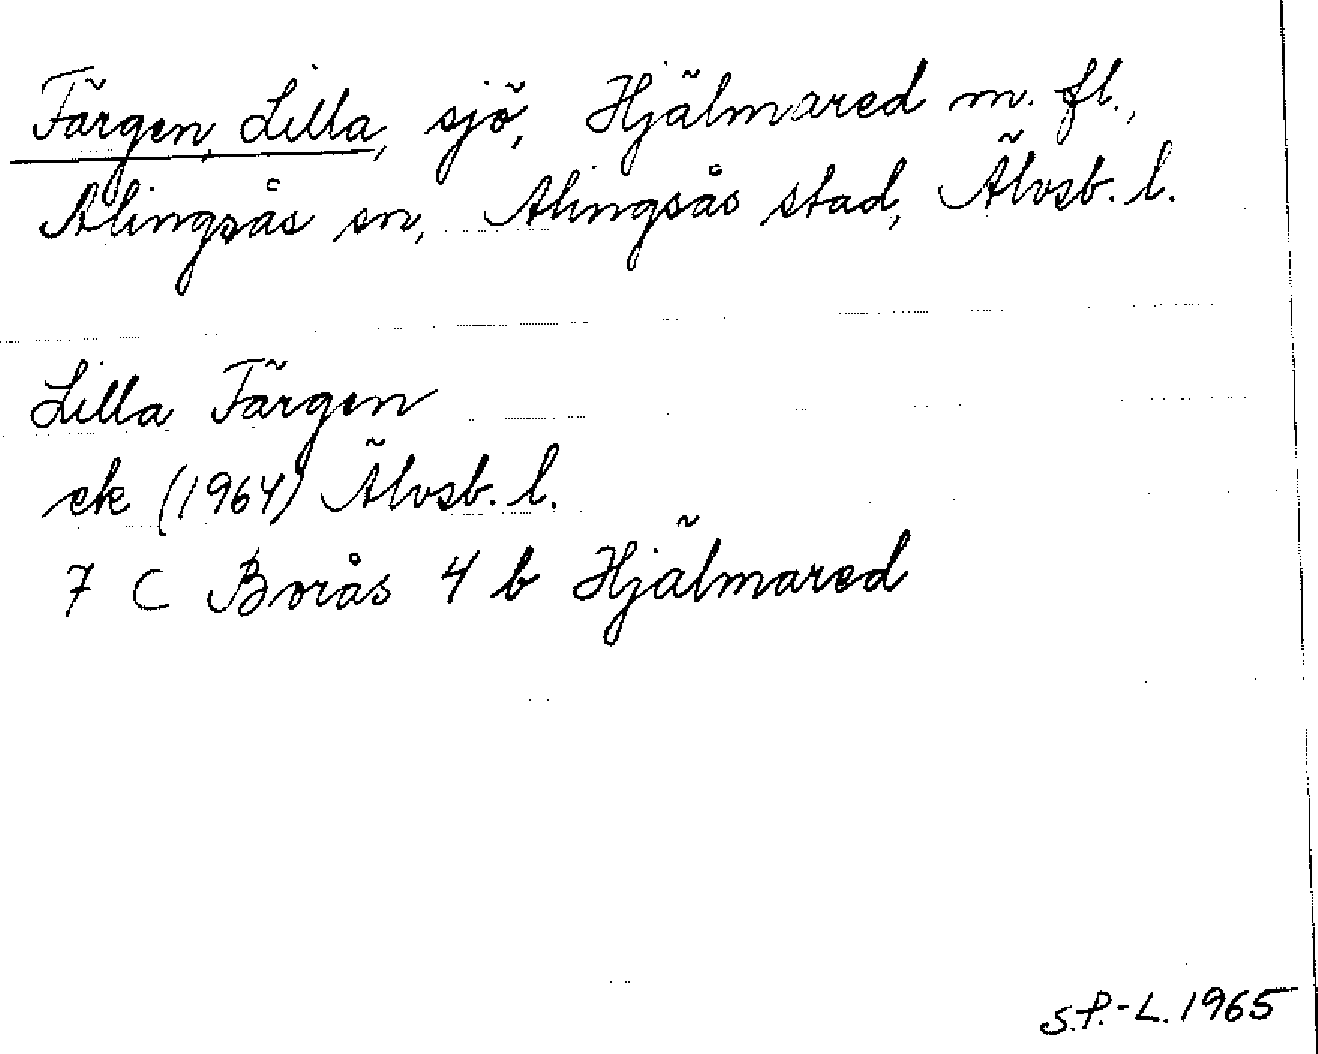 Färgen, Lilla, sjö, Hjälmared m. fl.,
Alingsås sn, Alingsås stad, Älvsb. l.
Lilla Färgen
ek (1964) Älvsb. l.
7 C Borås 4 b Hjälmared
S.P.-L. 1965